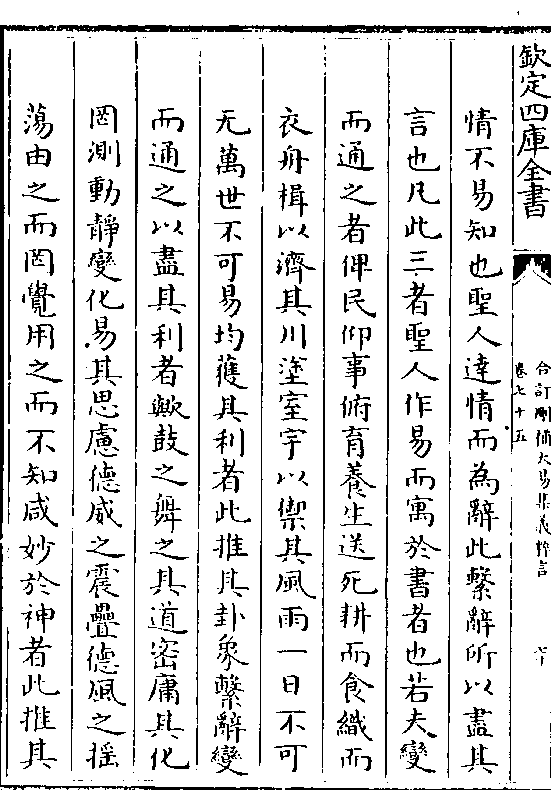 欽定四庫全書
合訂刪補大易集義粹言
卷七十五
情不易知也聖人達情而為辭此繫辭所以盡其
言也凡此三者聖人作易而寓於書者也若夫變
而通之者俾民仰事俯育養生送死耕而食織而
衣舟楫以濟其川塗室宇以禦其風雨一日不可
无萬世不可易均獲其利者此推其卦象繫辭變
而通之以盡其利者歟鼓之舞之其道密庸其化
罔測動靜變化易其思慮德威之震疊德風之揺
蕩由之而罔覺用之而不知咸妙於神者此推其